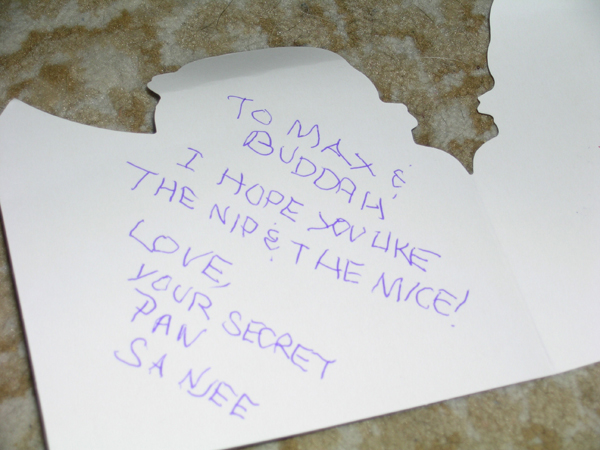 TO MAX &
BUDDAH
I HOPE YOU LIKE
THE NIP & THE MICE!
LOVE,
YOUR SECRET
PAN
SANJEE